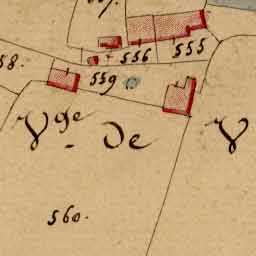 556
555
559
Vge
De
V
560.